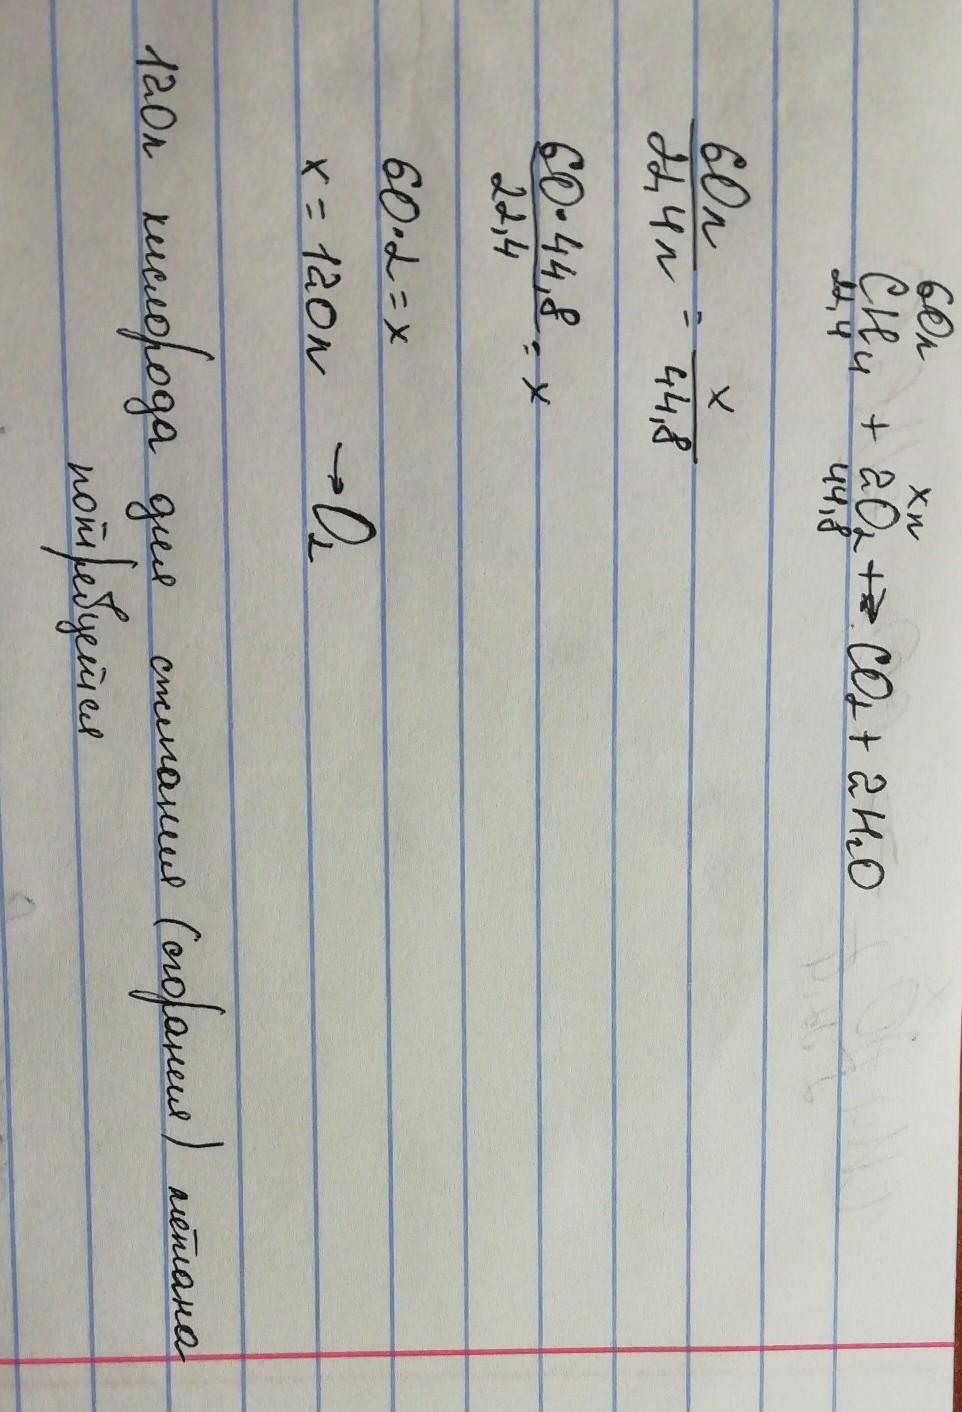 60л xл
CH₄ + 2O₂ +→ CO₂ + 2H₂O
22,4 44,8
60л/22,4л = x/44,8
60·44,8/22,4 = x
60·2=x
x = 120л → O₂
120л кислорода для сжигания (сгорания) метана
потребуется